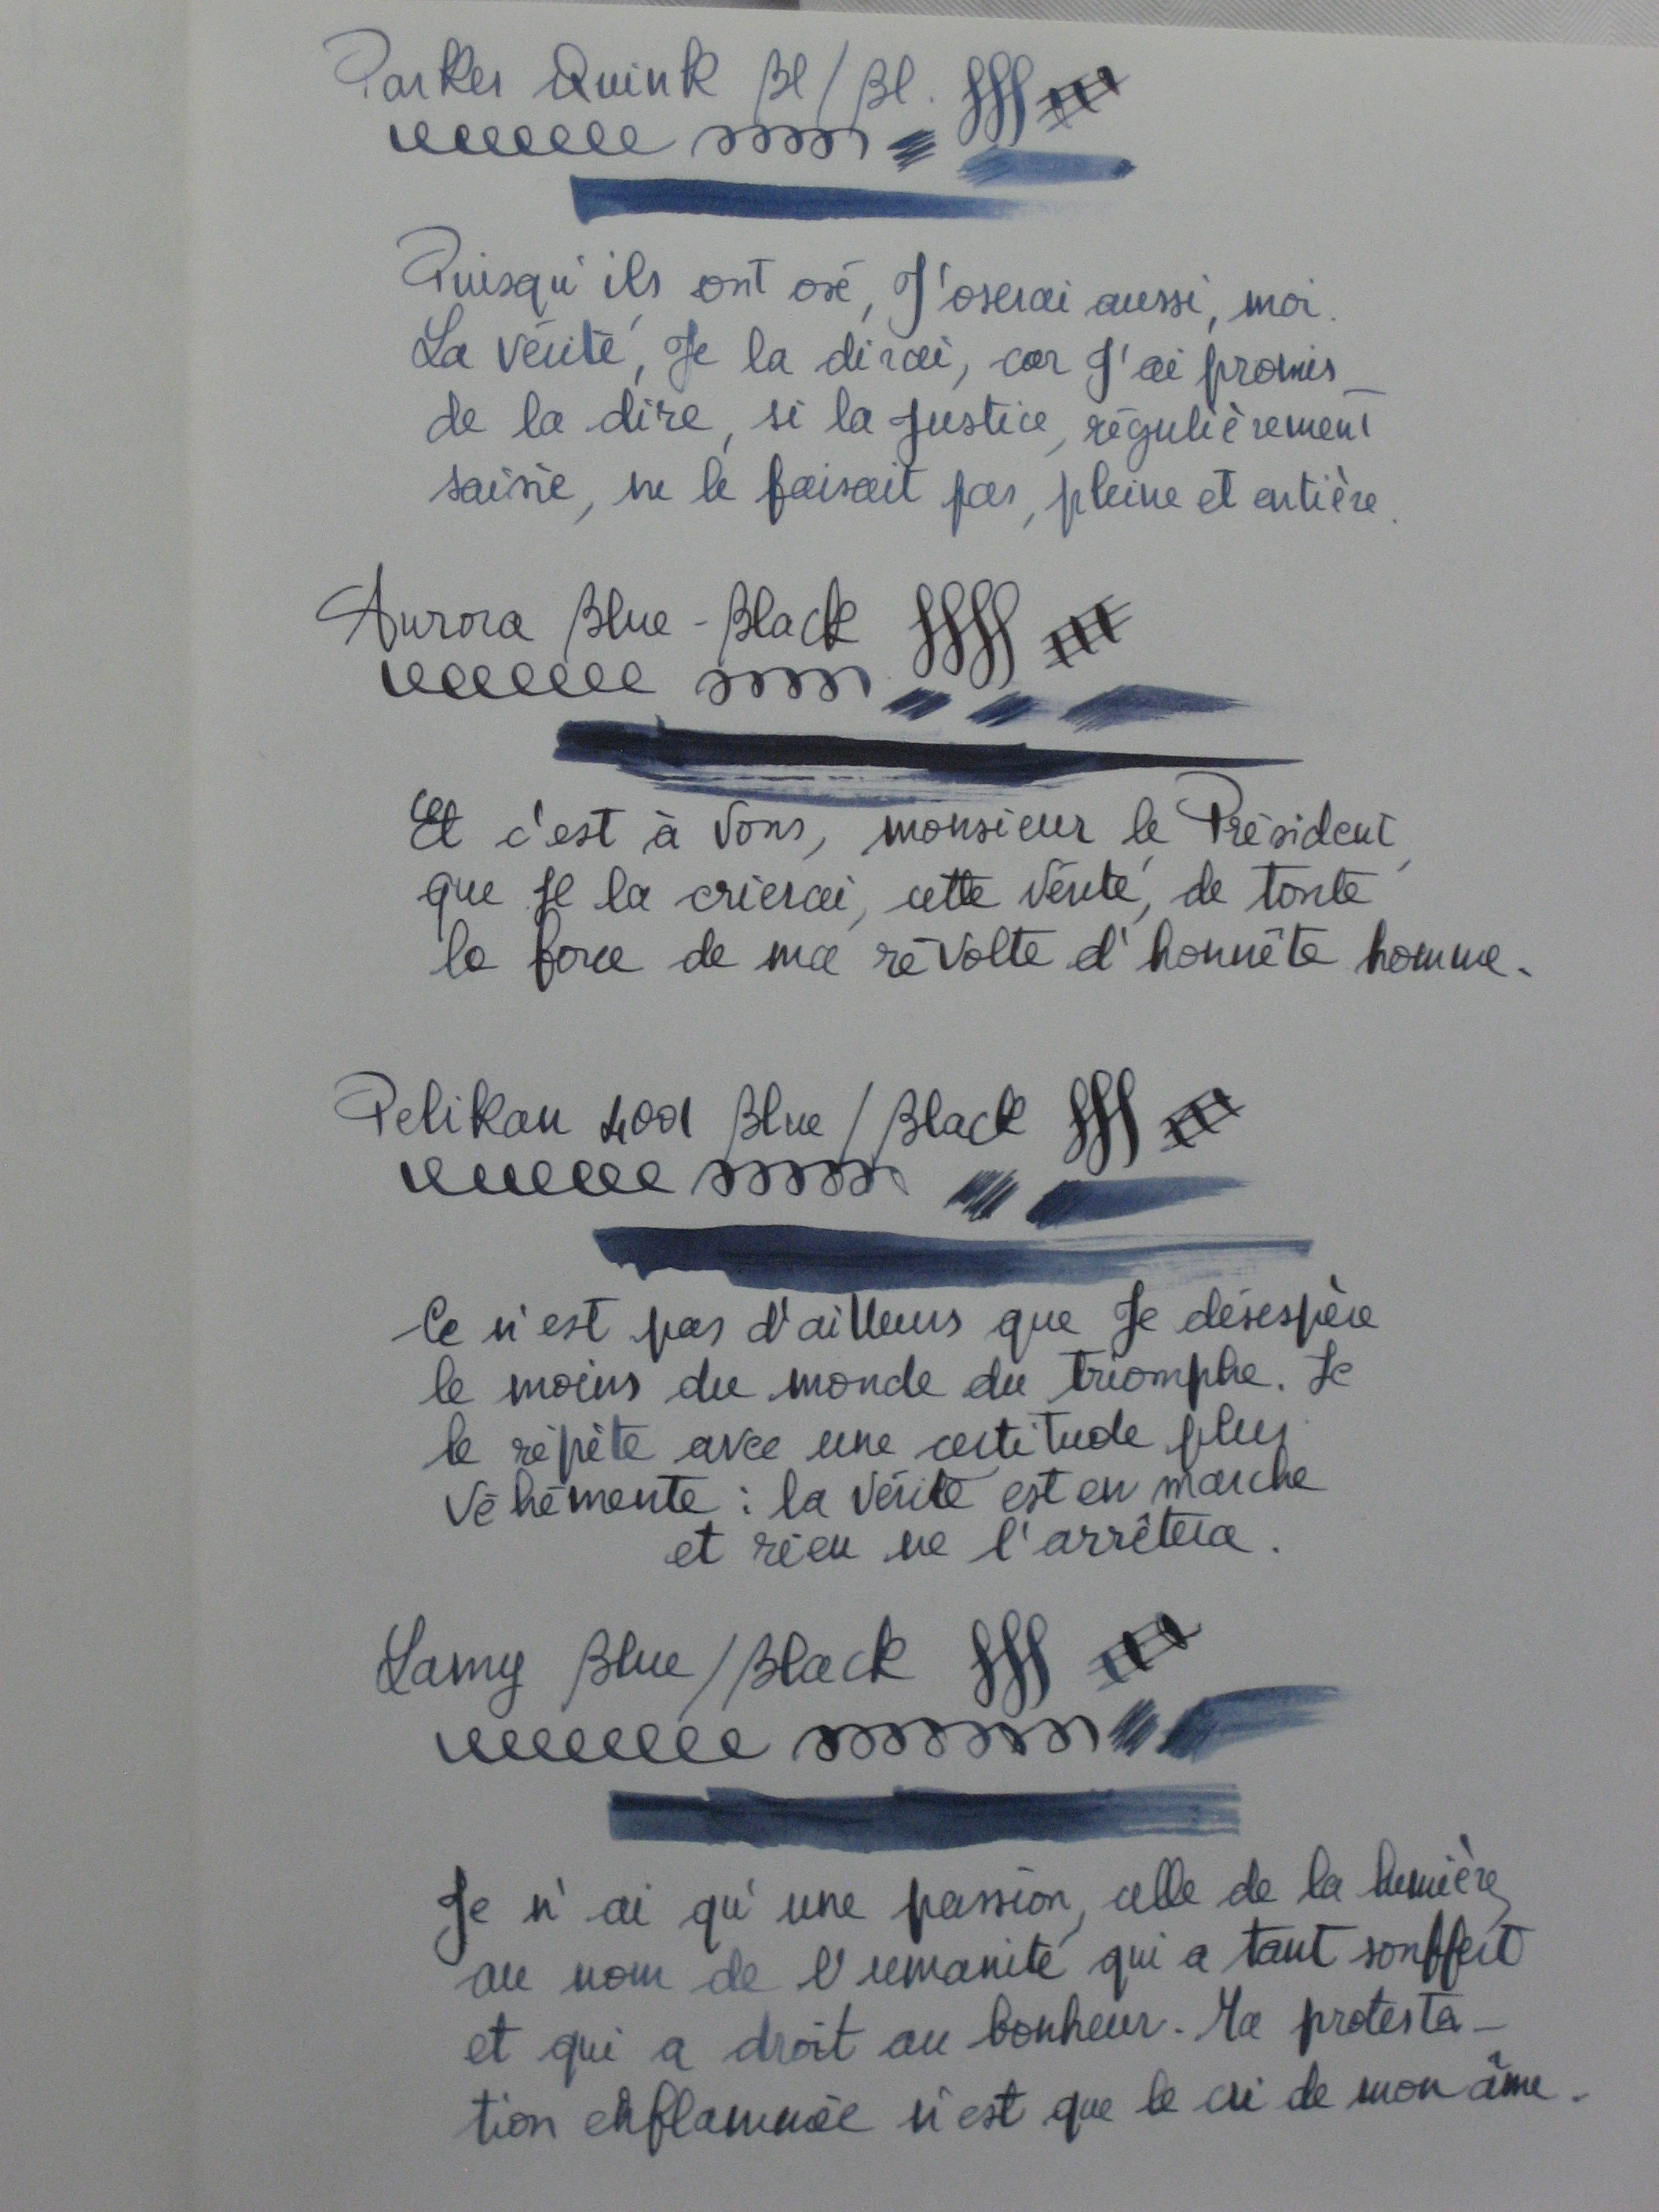 Parker Quink Bl/Bl.
Puisqu'ils ont osé, J'oserai aussi, moi.
La vérité, Je la dirai, car J'ai promis
de la dire, si la Justice, régulièrement
saisie, ne le faisait pas, pleine et entière.
Aurora Blue-Black
Et c'est à vous, monsieur le Président,
que Je la crierai, cette vérité, de toute
la force de ma révolte d'honnête homme.
Pelikan 4001 Blue/Black
Ce n'est pas d'ailleurs que Je désespère
le moins du monde du triomphe. Je
le répète avec une certitude plus
véhémente : la vérité est en marche
et rien ne l'arrêtera.
Lamy Blue/Black
Je n'ai qu'une passion, celle de la lumière,
au nom de l'umanité qui a tant souffert
et qui a droit au bonheur. Ma protesta-
tion enflammée n'est que le cri de mon âme.